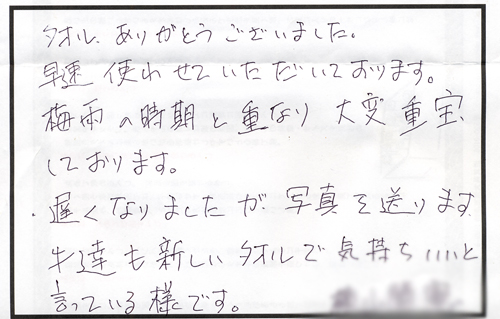 タオル、ありがとうございました。
早速使わせていただいております。
梅雨の時期と重なり大変重宝
しております。
遅くなりましたが写真を送ります
牛達も新しいタオルで気持ちいいと
言っている様です。